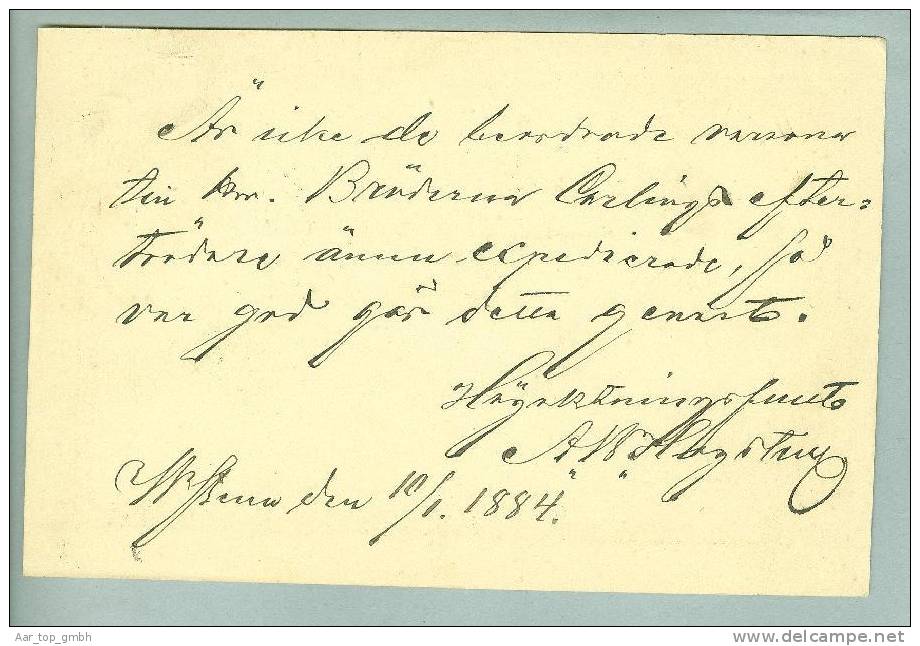 Är icke de beordrade varorna
till Hrr. Bröderna Carlings efter-
trädare ännu expedierade, så
var god gör detta genast.
Högaktningsfullt
A.W.
den 10/1. 1884.
Aar_top_gmbh
www.delcampe.net